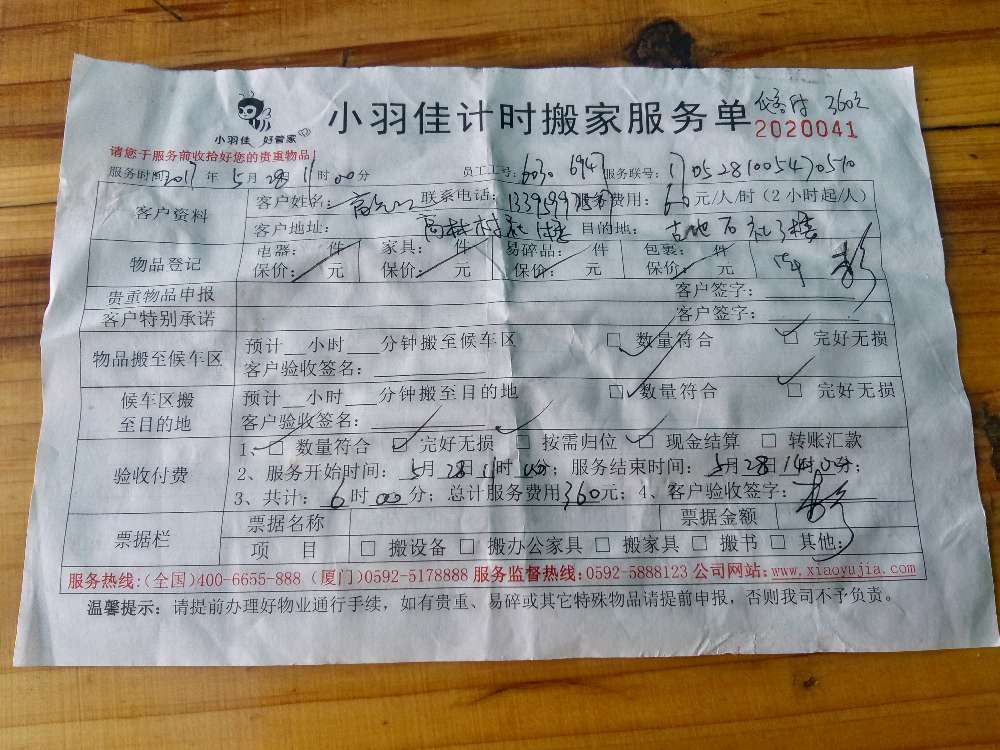 小羽佳 好管家
小羽佳计时搬家服务单
360元
2020041
请您于服务前收拾好您的贵重物品！
服务时间2017年5月28日11时00分 员工工号：6030 6947 服务联号：1705281005470510
客户资料 客户姓名： 联系电话： 服务费用：60元/人/时（2小时起/人）
客户地址： 目的地：
物品登记 电器： 件 家具： 件 易碎品： 件 包裹： 件
保价： 元 保价： 元 保价： 元 保价： 元
贵重物品申报 客户签字：
客户特别承诺 客户签字：
物品搬至候车区 预计__小时___分钟搬至候车区 □ 数量符合 □ 完好无损
客户验收签名：
候车区搬至目的地 预计__小时___分钟搬至目的地 □ 数量符合 □ 完好无损
客户验收签名：
验收付费 1、□ 数量符合 □ 完好无损 □ 按需归位 □ 现金结算 □ 转账汇款
2、服务开始时间：5月28日11时00分；服务结束时间：5月28日14时00分；
3、共计：6时00分；总计服务费用360元；4、客户验收签字：
票据栏 票据名称 票据金额
项 目 □ 搬设备 □ 搬办公家具 □ 搬家具 □ 搬书 □ 其他：
服务热线：(全国)400-6655-888 (厦门)0592-5178888 服务监督热线：0592-5888123 公司网站：www.xiaoyujia.com
温馨提示：请提前办理好物业通行手续，如有贵重、易碎或其它特殊物品请提前申报，否则我司不予负责。